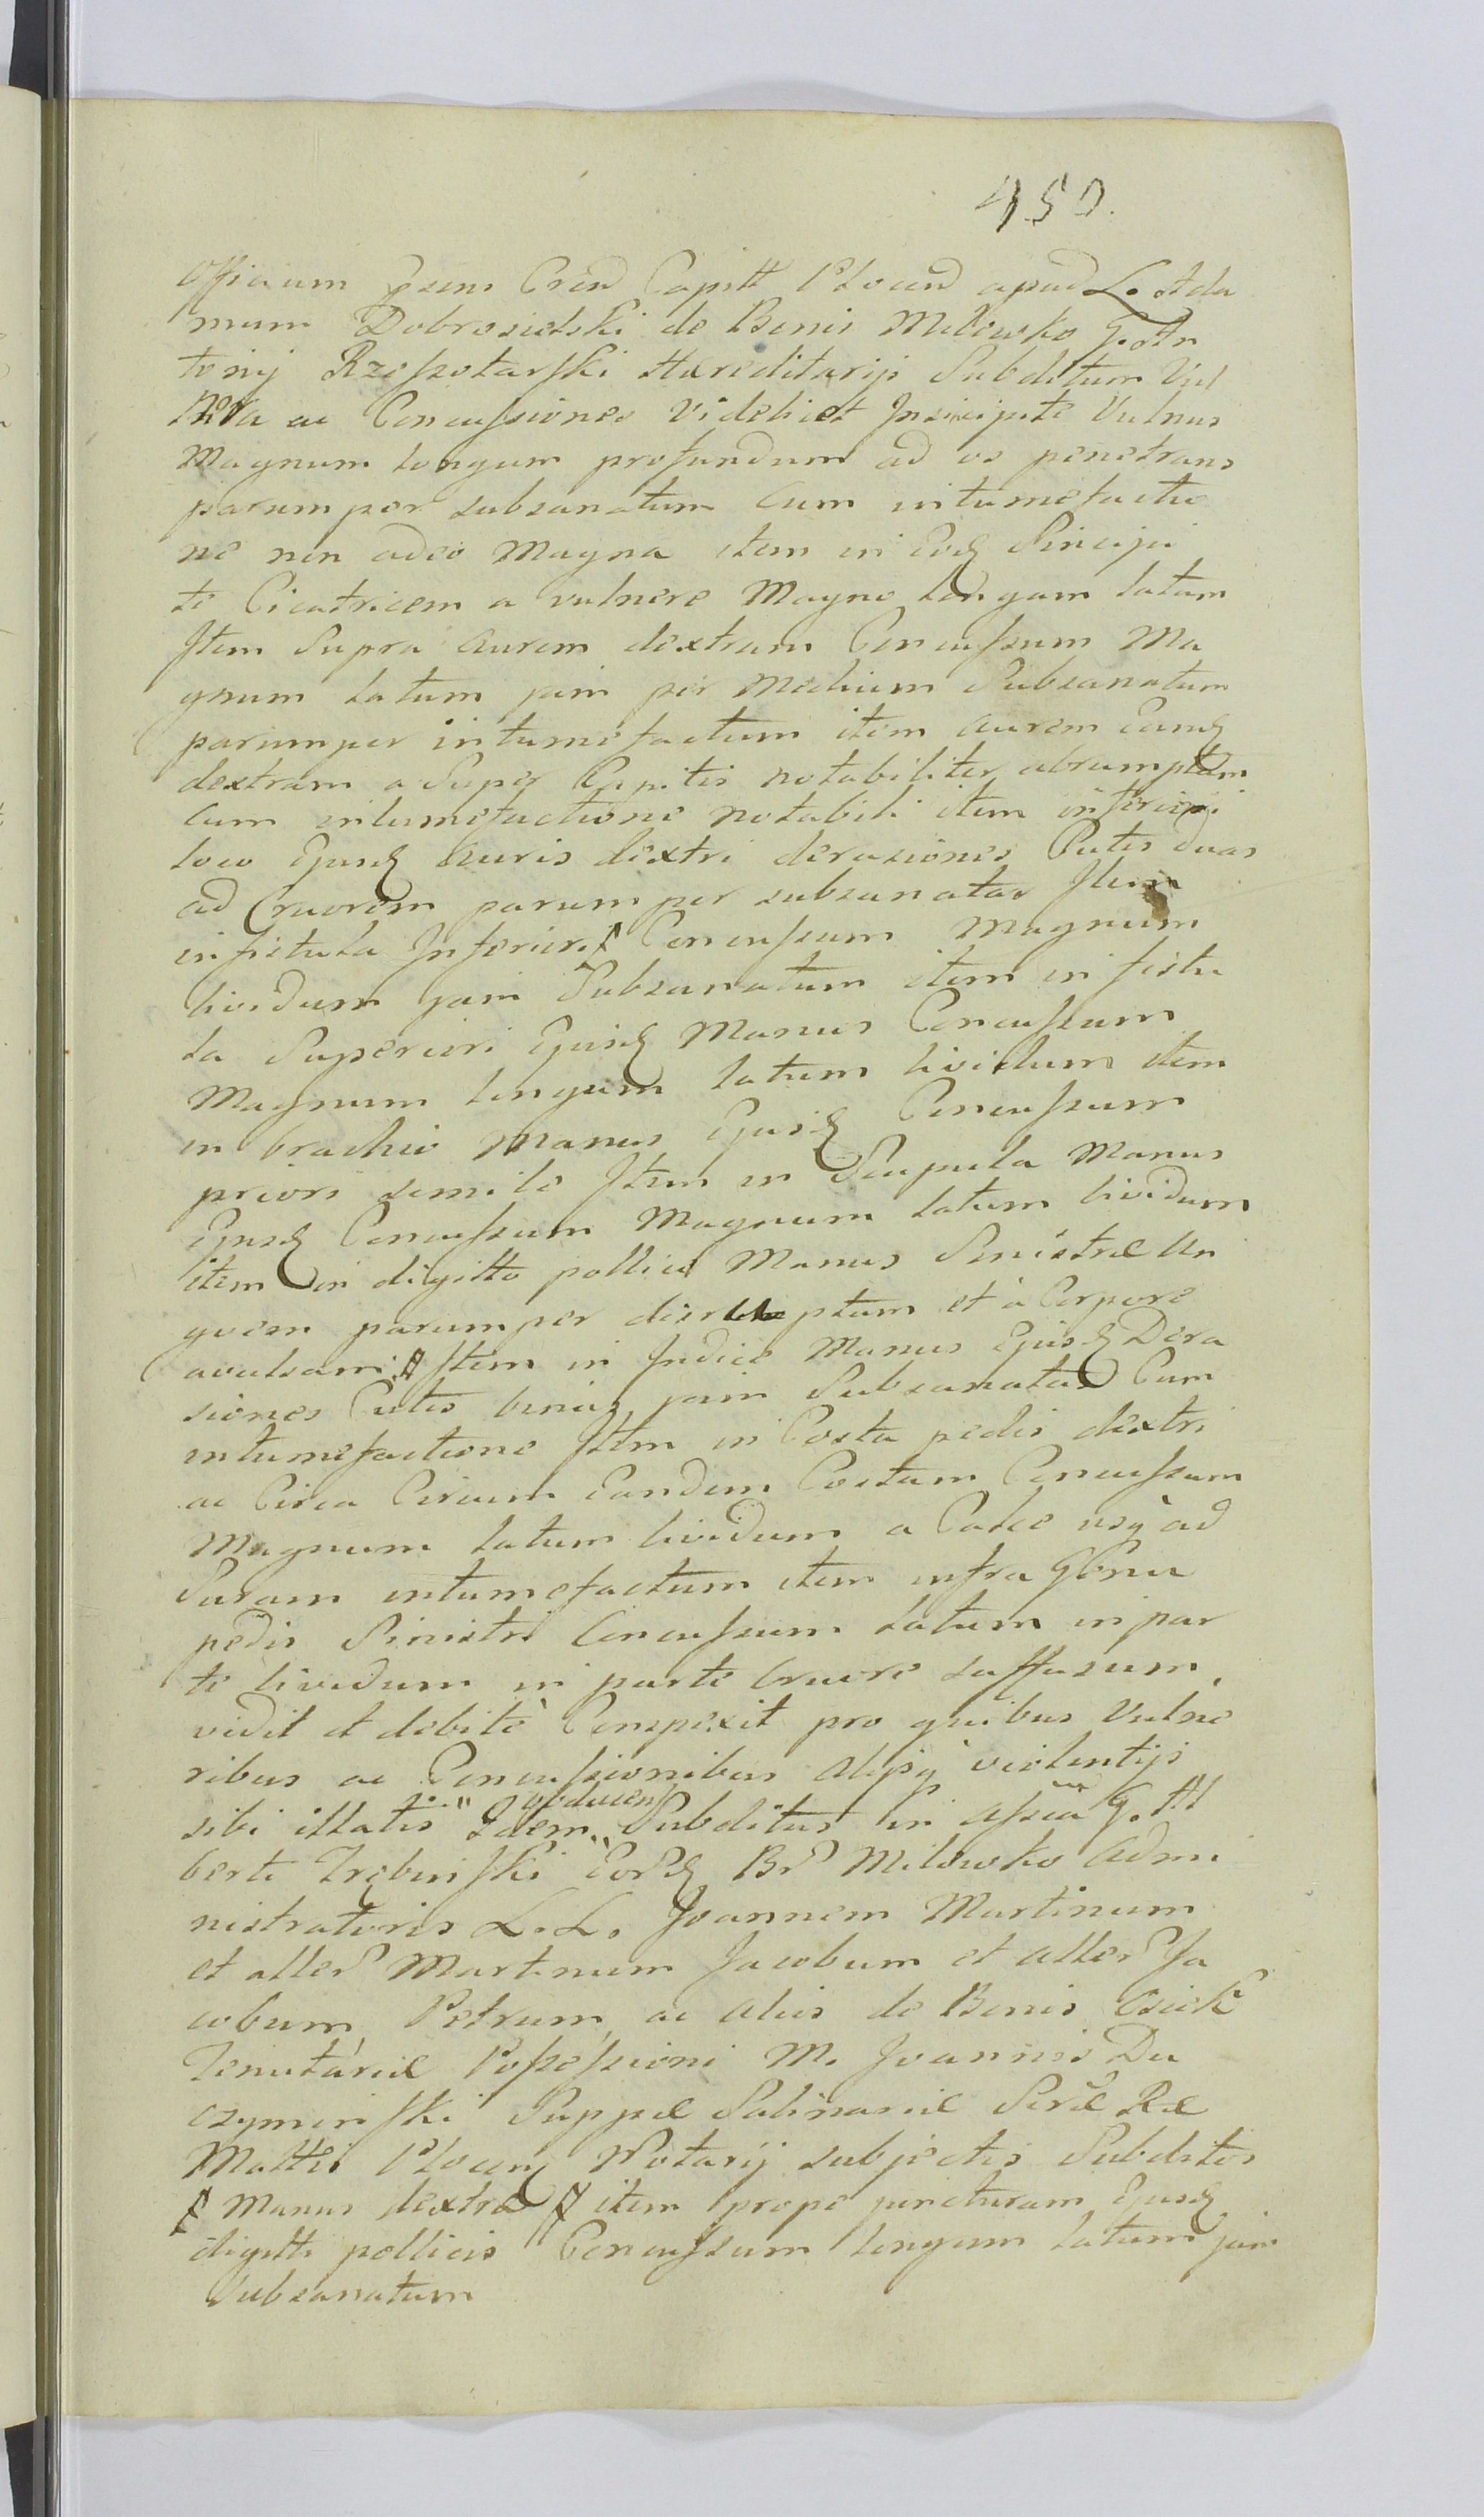 450.
Officium pñens Cren̄ Capitt Plocen̄ apud L. Ada
mum Dobrosielski de Bonis Milowko G. An
tonij Rzeszotarski Hæreditarijs Subditum Vul
nera ac Concussiones Videlicet In sincipite Vulnus
Magnum longum profundum ad os penetrans
parumper subsanatum cum intumefactio
ne non adeo Magna item in Eod Sincipi
te Cicatricem a vulnere Magno longam latam
Item Supra aurem dextram Concussum Ma
gnum latum jam per Medium Subsanatum
parumper intumefactum item aurem Eand
dextram a Super Capitis notabiliter abrumptam
cum intumefactione notabili item inferiori
loco Ejusd auris dextri derasiones Cutis duas
ad Cruorem parumper subsanatas Item
in fistula Inferiori Concussum Magnum
lividum jam Subsanatum item in fistu
la Superiori Ejusd Manus Concussum
Magnum longum latum lividum item
in brachio Manus Ejusd Concussum
priori simile Item in Scapula Manus
Ejusd Concussum Magnum latum lividum
item in digitto pollici Manus Sinistræ Un
guem parumper disruptum et à Corpore
avulsam Item in Indice Manus Ejusd Dera
siones Cutis binas jam Subsanatas Cum
intumefactione Item in Costa pedis dextri
ac Circa Circum Eandem Costam Concussum
Magnum latum lividum a Calce usq ad
Suram intumefactum item infra Genu
pedis Sinistri Concussum latum in par
te lividum in parte cruore suffusum
vidit et debitè Conspexit pro quibus Vulne
ribus ac Concussionibus alijsq violentijs
sibi illatis Idem obducen Subditus in assña G. Al
berti Trębinski Eord Br Milowko Admi
nistratoris L. L. Joannem Martinum
et alter Martinum Jacobum et alter Ja
cobum, Petrum, ac alios de Bonis
Tenutariæ Possessioni M. Joannis Du
czyminski Suppæ Salinariæ Seræ Ræ
Mattis Plocen Notarij subjectis Subditos
Manus dextræ item prope juncturam Ejusd
digitti pollicis Concussum longum latum jam
Subsanatum